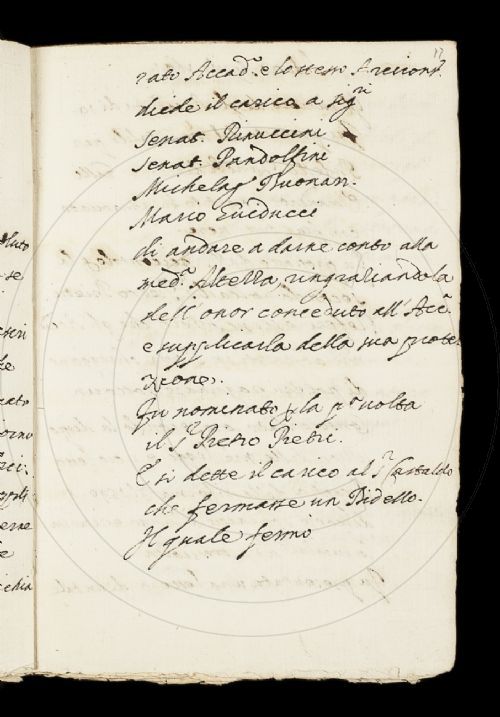 17
rato Accad.ᵃ e lo stesso Arcicons.
diede il carico a sig.ri
Senat. Rinuccini
Senat. Pandolfini
Michelag.º Buonar.
Mario Guiducci
di andare a darne conto alla
med.ª Altezza, ringraziandola
dell'onor conceduto all'Acc.ª
e supplicarla della sua prote
zione.
Fu nominato p la pª volta
il s.r Pietro Pieri.
E si dette il carico al s.r Castaldo
che fermasse un Bidello.
Il quale fermò
oluto
se